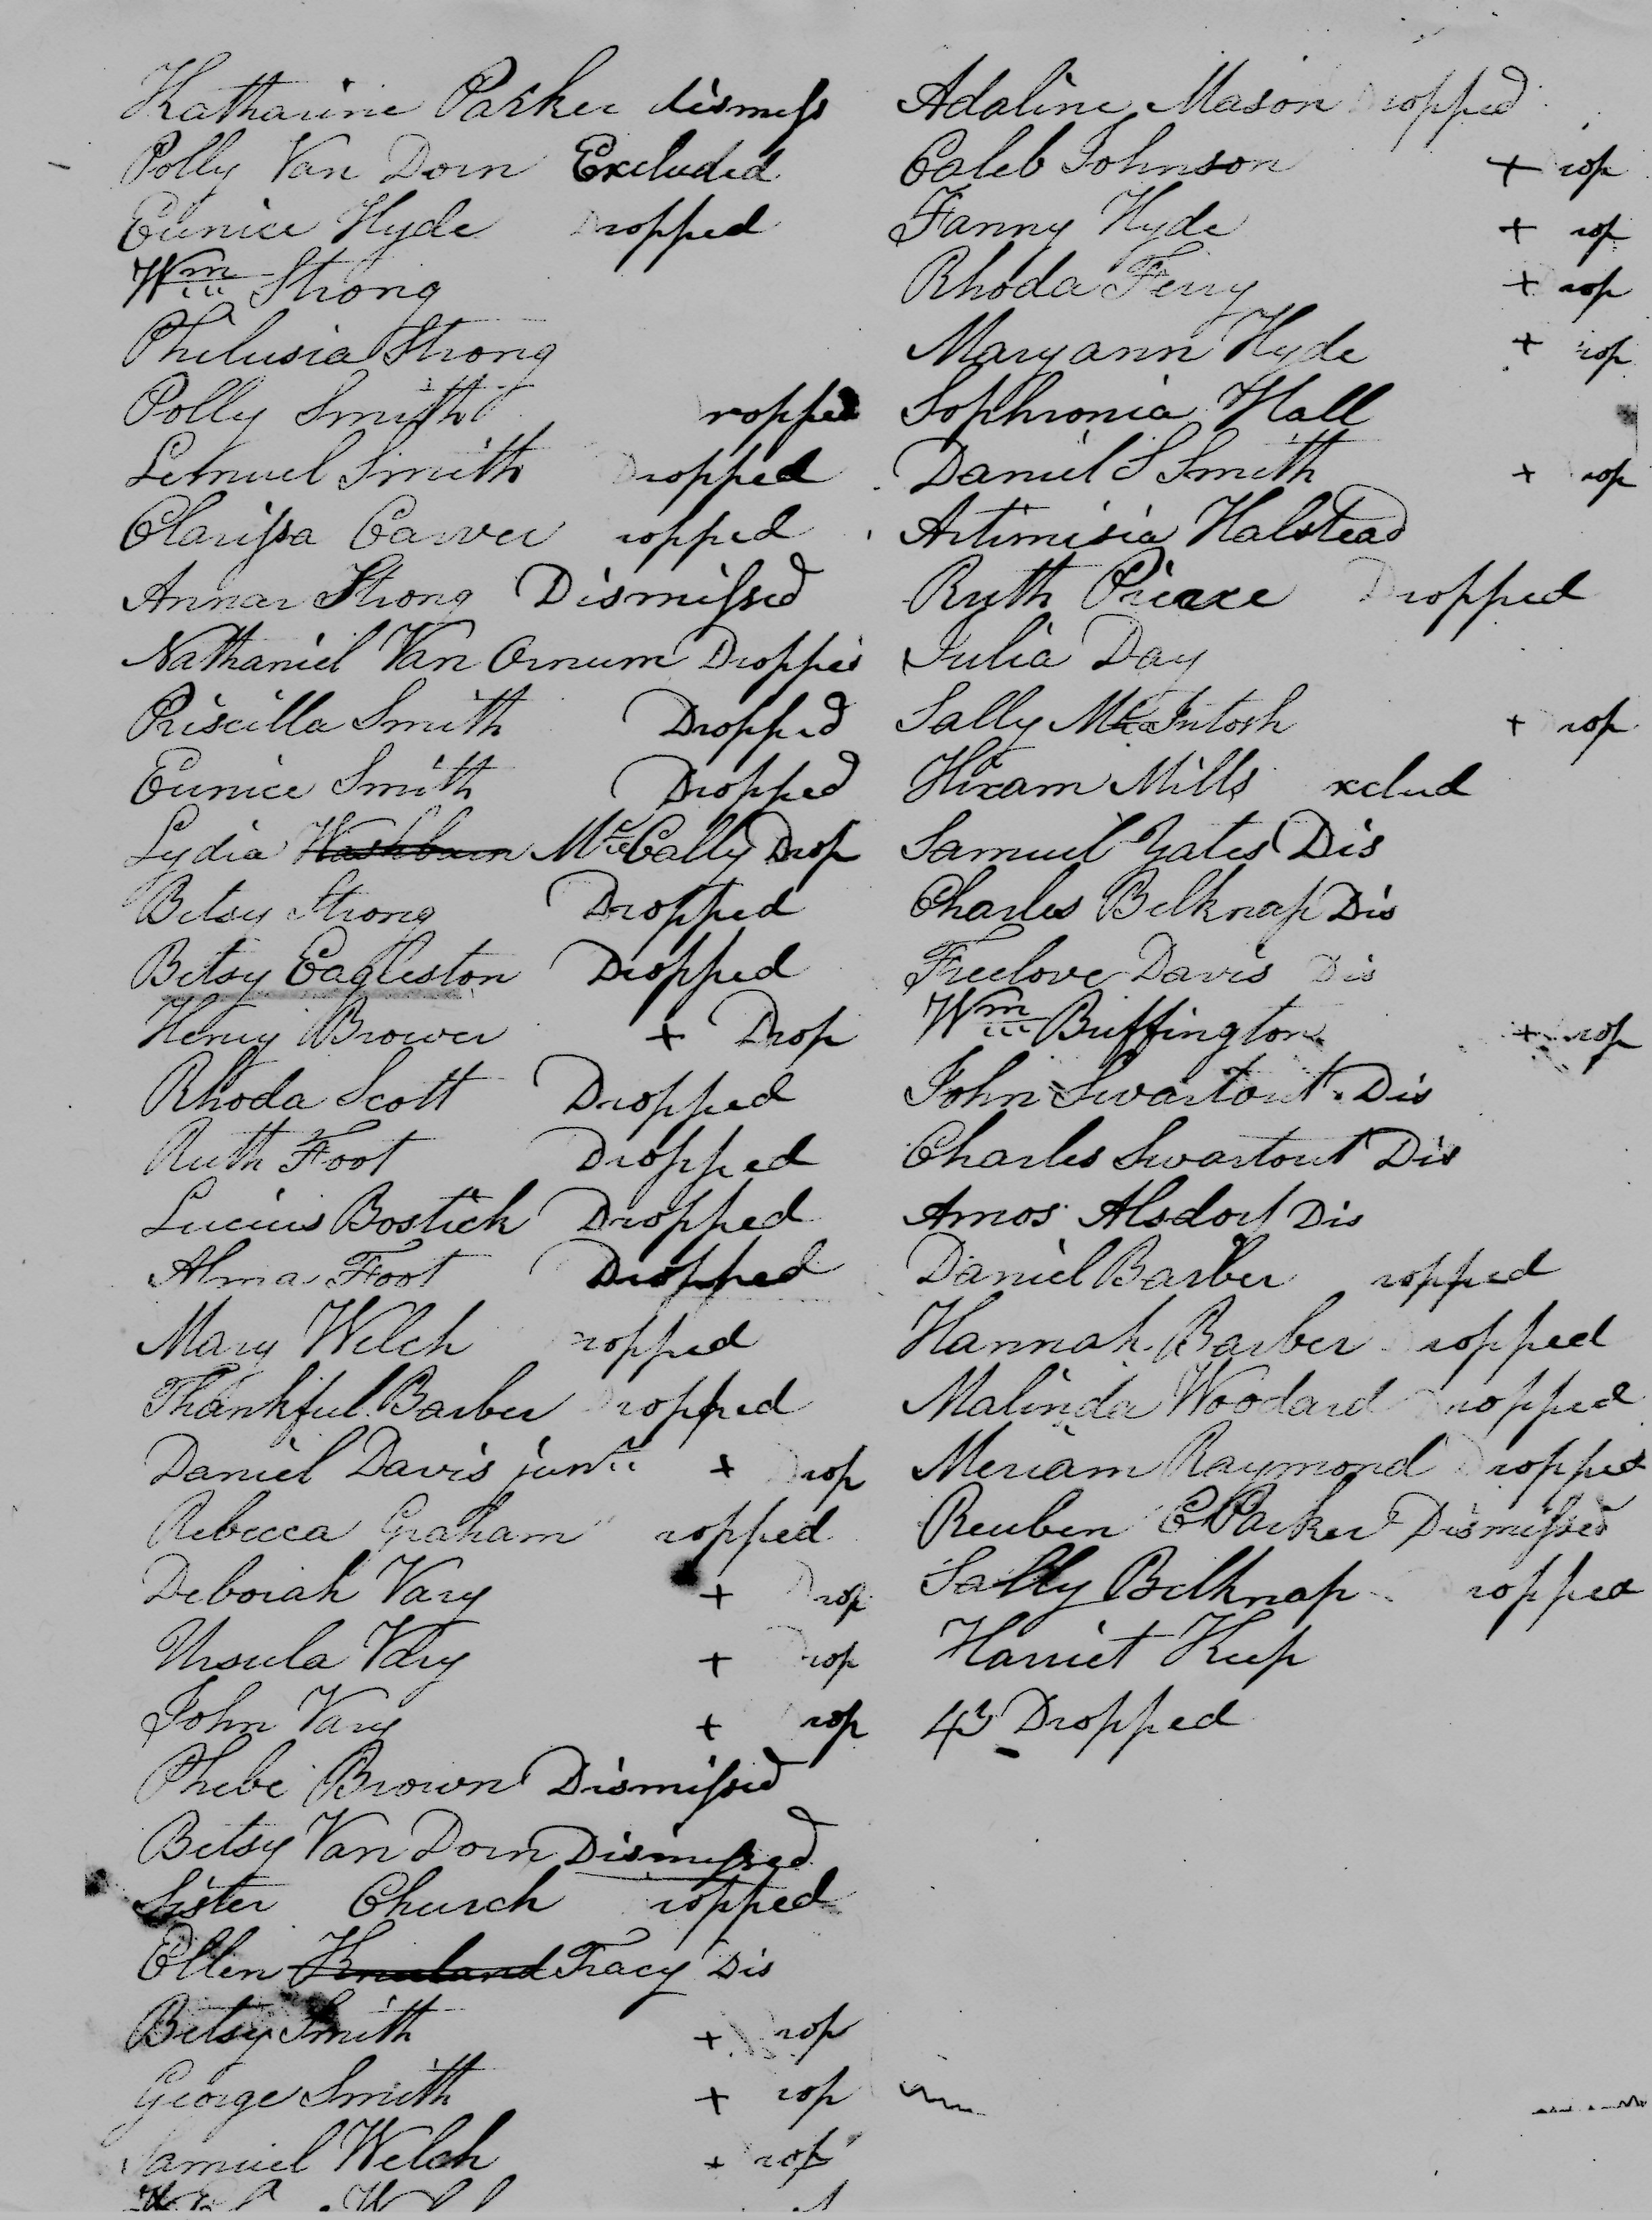 Katharine Parker dismiss
Polly Van Dorn Excluded
Eunice Hyde Dropped
Wm Strong
Philusia Strong
Polly Smith ropped
Lemuel Smith Dropped
Clarissa Carver ropped
Annar Strong Dismissed
Nathaniel Van Ornum Dropped
Priscilla Smith Dropped
Eunice Smith Dropped
Lydia Washburn McCally Drop
Betsy Strong Dropped
Betsy Eagleston Dropped
Henry Brower + Drop
Rhoda Scott Dropped
Ruth Foot Dropped
Lucius Bostick Dropped
Alma Foot Dropped
Mary Welch ropped
Thankful Barber Dropped
Daniel Davis junr + Drop
Rebecca Graham ropped
Deborah Vary + Drop
Ursula Vary + Drop
John Vary + rop
Phebe Brown Dismissed
Betsy Van Dorn Dismissed
Sister Church ropped
Ellen Kneeland Tracy Dis
Betsy Smith + rop
George Smith + rop
Samuel Welch + rop
Adaline Mason Dropped
Caleb Johnson + rop
Fanny Hyde + rop
Rhoda Ferry + rop
Maryann Hyde + rop
Sophronia Hall
Daniel S Smith + rop
Artimisia Halstead
Ruth Pierce Dropped
Julia Day
Sally McIntosh + rop
Hiram Mills xclud
Samuel Yates Dis
Charles Belknap Dis
Freelove Davis Dis
Wm Buffington + rop
John Swartout Dis
Charles Swartout Dis
Amos Alsdorf Dis
Daniel Barber ropped
Hannah Barber ropped
Malinda Woodard Dropped
Meriam Raymond Dropped
Reuben C Parker Dismissed
Sally Belknap ropped
Harriet Keep
43 Dropped